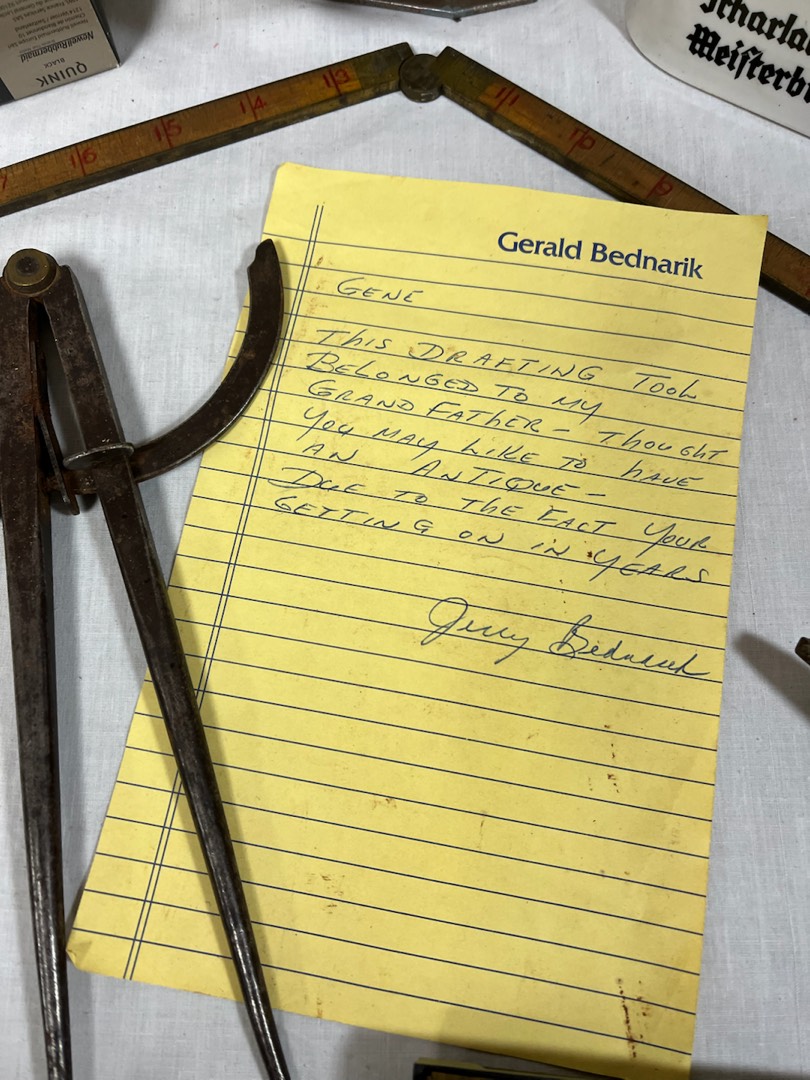 QUINK
BLACK
NewellRubbermaid
13
14
15
16
11
10
9
Meisterb
Gerald Bednarik
GENE
THIS DRAFTING TOOL
BELONGED TO MY
GRAND FATHER - THOUGHT
YOU MAY LIKE TO HAVE
AN ANTIQUE -
DUE TO THE FACT YOUR
GETTING ON IN YEARS
Jerry Bednarik